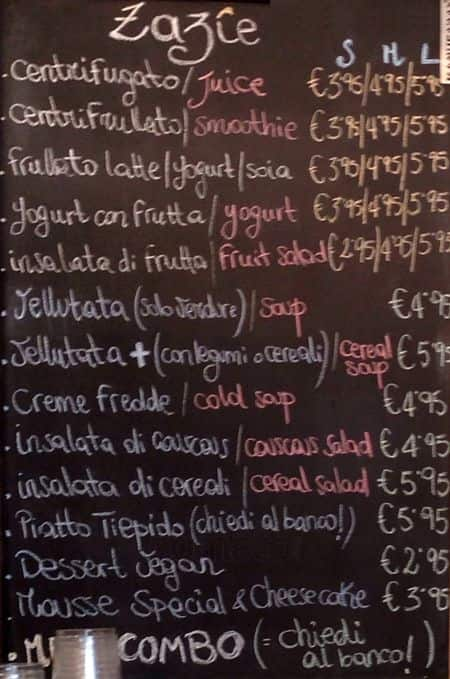 Zazie
S M L
. Centrifugato/Juice €3'95/4'95/5'95
. Centrifrullato/smoothie €3'95/4'95/5'95
. frullato latte/yogurt/soia €3'95/4'95/5'95
. Yogurt con frutta/yogurt €3'95/4'95/5'95
. insalata di frutta/fruit salad €2'95/4'95/5'95
. Vellutata (solo verdure)/soup €4'95
. Vellutata + (con legumi o cereali)/cereal soup €5'95
. Creme fredde/cold soup €4'95
. insalata di couscous/couscous salad €4'95
. insalata di cereali/cereal salad €5'95
. Piatto Tiepido (chiedi al banco!) €5'95
. Dessert Vegan €2'95
. Mousse Special & Cheesecake €3'95
. COMBO (= chiedi al banco!)